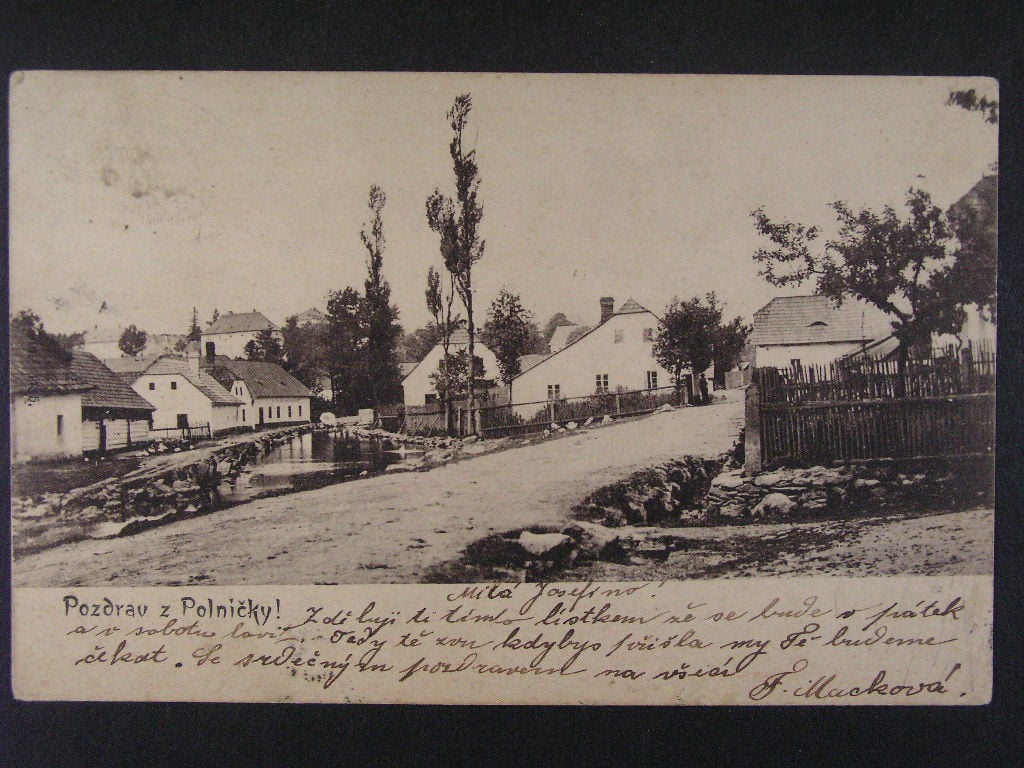 Milá Josefino!
Pozdrav z Polničky!
Zděluji ti tímto lístkem že se bude v pátek
a v sobotu lovit. Tedy tě zvu kdybys přišla my Tě budeme
čekat. Se srdečným pozdravem na všecí
F. Macková.